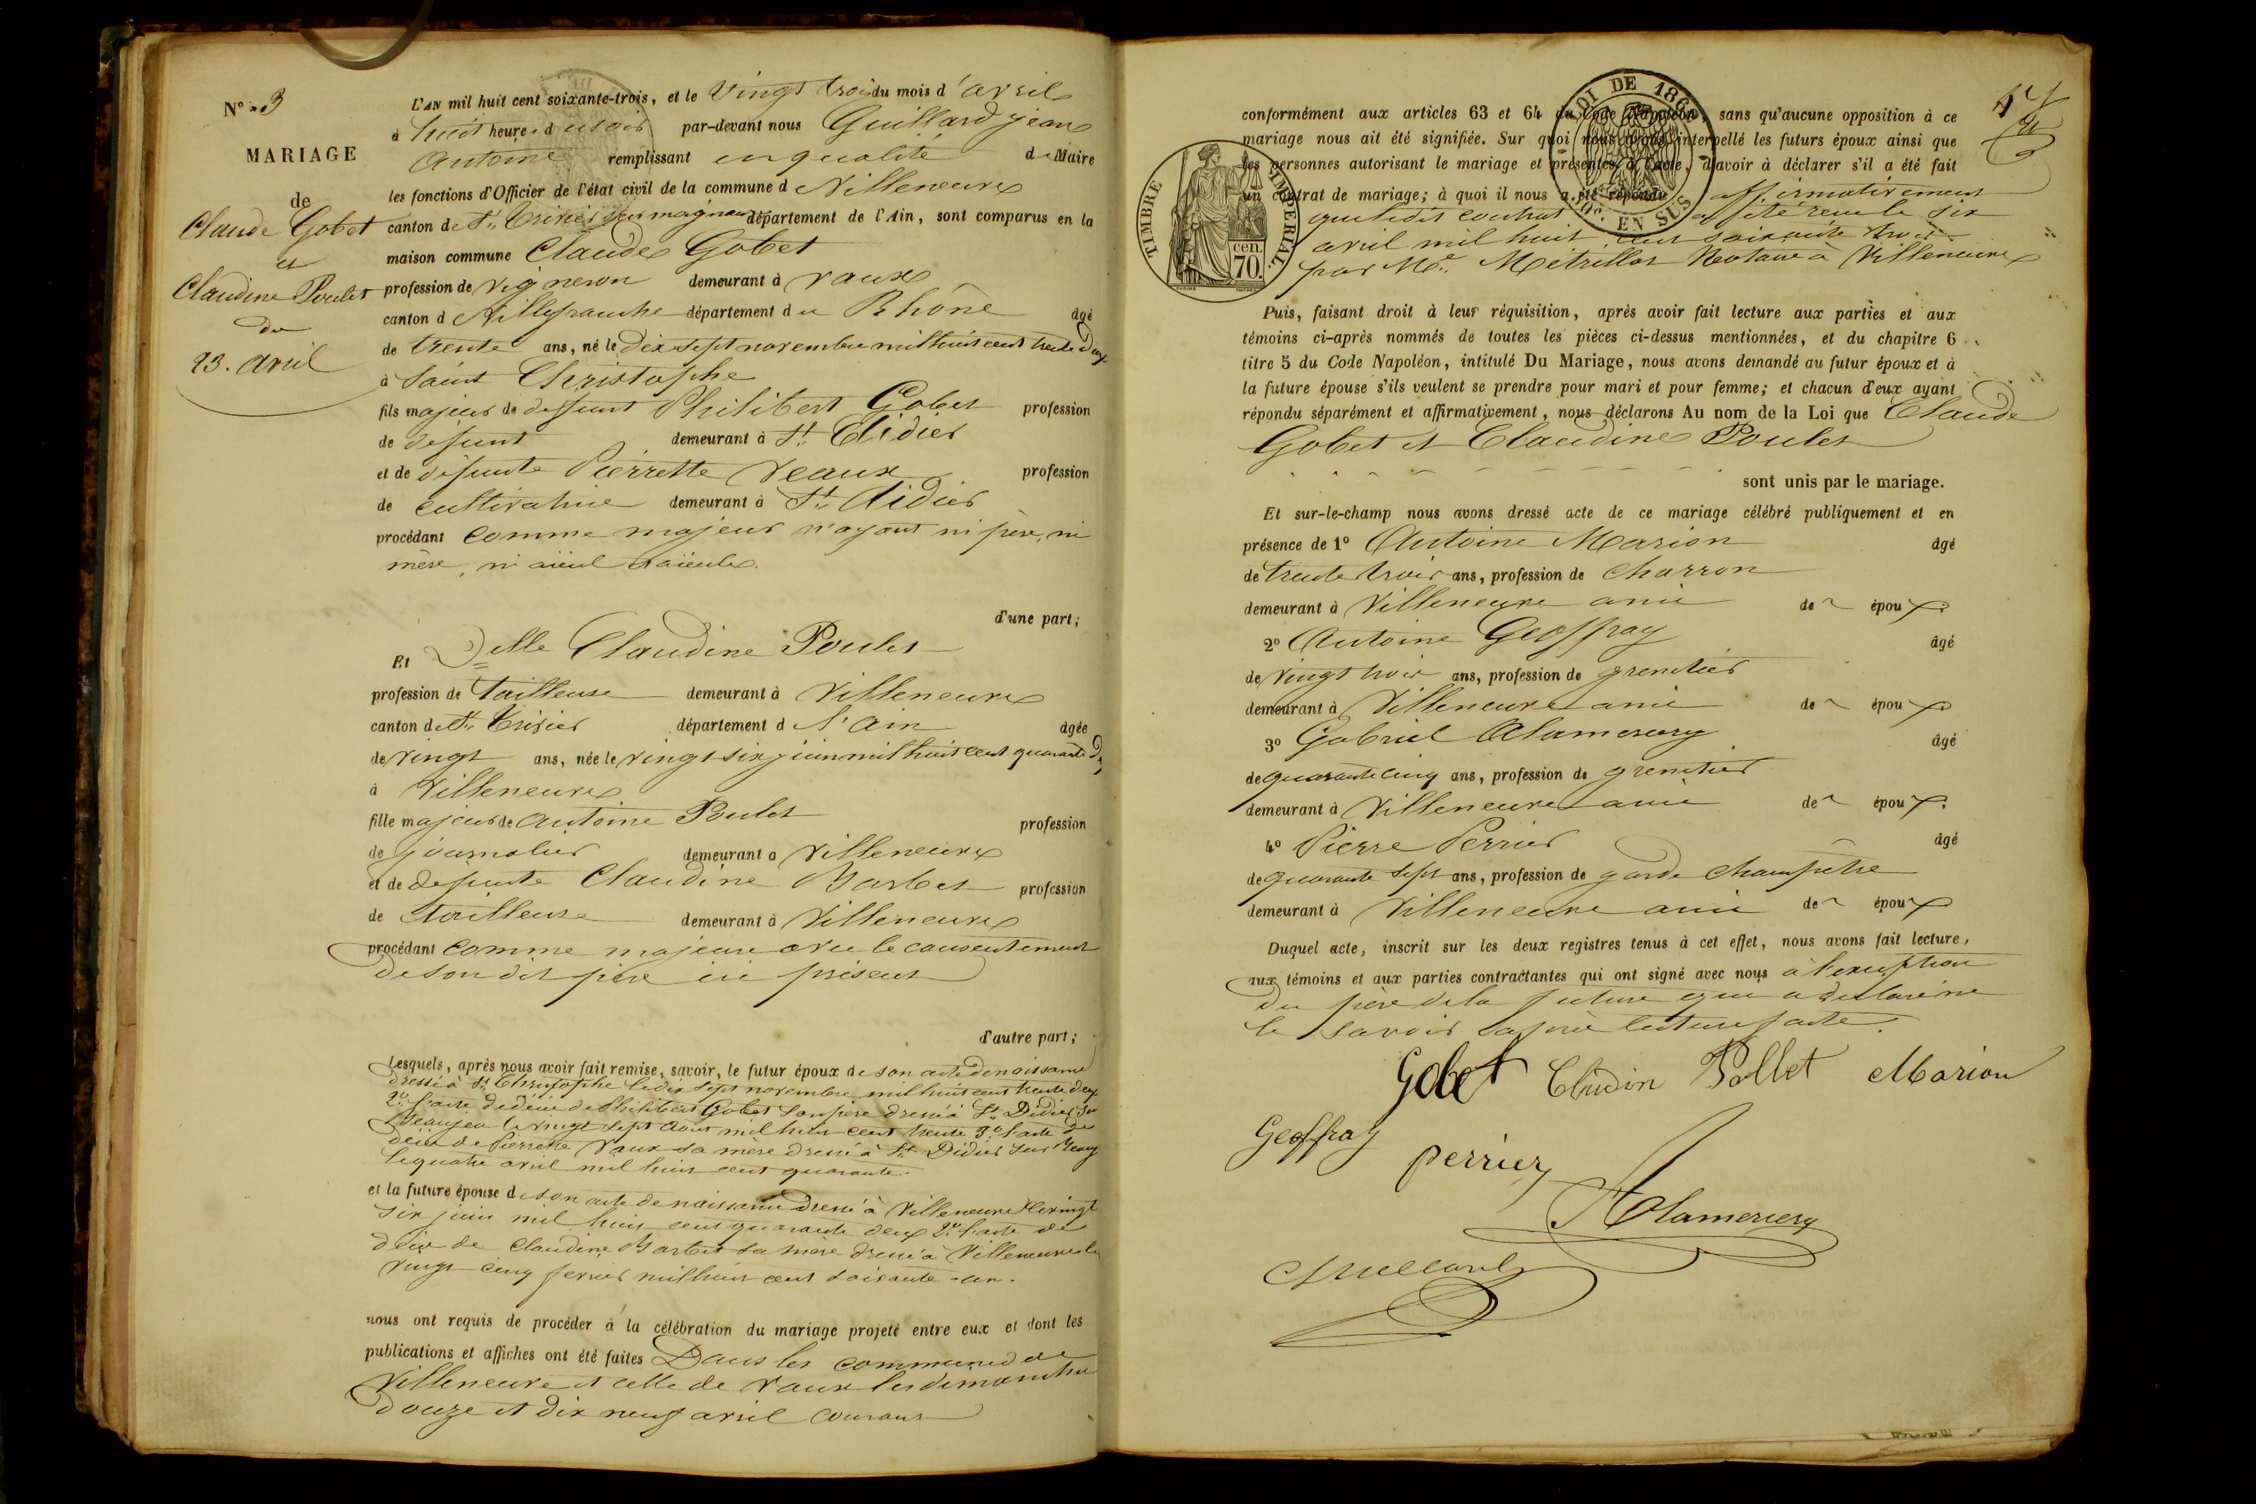 N° 3
MARIAGE
de
Claude Gobet
et
Claudine Poulet
du
23. avril
L'AN mil huit cent soixante-trois, et le vingt trois du mois d'avril
à huit heures du soir par-devant nous Guillard jean
Antoine remplissant en qualité de Maire
les fonctions d'Officier de l'état civil de la commune de Villeneuve
canton de St. Trivier département de l'Ain, sont comparus en la
maison commune Claude Gobet
profession de vigneron demeurant à Vaux
canton d Villefranche département du Rhône âgé
de trente ans, né le dix sept novembre mil huit cent trente deux
à Saint Christophe
fils majeur de deffunt Philibert Gobet profession
de défunt demeurant à St. Didier
et de défunte Pierrette Veaux profession
de cultivatrice demeurant à St. Didier
procédant comme majeur n'ayant ni père, ni
mère, ni aïeul ni aïeule.
d'une part;
Et Delle Claudine Poulet
profession de tailleuse demeurant à Villeneuve
canton de St. Trivier département d l'Ain âgée
de vingt ans, née le vingt six juin mil huit cent quarante deux
à Villeneuve
fille majeur de Antoine Poulet profession
de journalier demeurant à Villeneuve
et de défunte Claudine Barbet profession
de tailleuse demeurant à Villeneuve
procédant comme majeure avec le consentement
de son dit père ici présent
d'autre part;
Lesquels, après nous avoir fait remise, savoir, le futur époux de son acte de naissance
dressé à St. Christophe le dix sept novembre mil huit cent trente deux
2° l'acte de décès de Philibert Gobet son père dressé à St. Didier sur
Beaujeu le vingt sept aout mil huit cent trente 3° l'acte de
décès de Pierrette Vaux sa mère dressé à St. Didier sur Beauj
le quatre avril mil huit cent quarante.
et la future épouse de son acte de naissance dressé à Villeneuve le vingt
six juin mil huit cent quarante deux 2° l'acte de
décès de Claudine Barbet sa mère dressé à Villeneuve le
vingt cinq fevrier mil huit cent soixante un.
nous ont requis de procéder à la célébration du mariage projeté entre eux et dont les
publications et affiches ont été faites Dans les communes de
Villeneuve et celle de Vaux les dimanche
douze et dix neuf avril courant
TIMBRE IMPERIAL
70 cen.
LOI DE 1862
EN SUS
conformément aux articles 63 et 64 du Code Napoléon, sans qu'aucune opposition à ce
mariage nous ait été signifiée. Sur quoi nous avons interpellé les futurs époux ainsi que
les personnes autorisant le mariage et présentes à l'acte, d'avoir à déclarer s'il a été fait
un contrat de mariage; à quoi il nous a été répondu affirmativement
que ledit contrat a été reçu le six
avril mil huit cent soixante trois
par Me. Metrillot Notaire à Villeneuve
Puis, faisant droit à leur réquisition, après avoir fait lecture aux parties et aux
témoins ci-après nommés de toutes les pièces ci-dessus mentionnées, et du chapitre 6
titre 5 du Code Napoléon, intitulé Du Mariage, nous avons demandé au futur époux et à
la future épouse s'ils veulent se prendre pour mari et pour femme; et chacun d'eux ayant
répondu séparément et affirmativement, nous déclarons Au nom de la Loi que Claude
Gobet et Claudine Poulet
sont unis par le mariage.
Et sur-le-champ nous avons dressé acte de ce mariage célébré publiquement et en
présence de 1° Antoine Marion âgé
de trente trois ans, profession de charron
demeurant à Villeneuve ami de époux
2° Antoine Geoffray âgé
de vingt trois ans, profession de grenetier
demeurant à Villeneuve ami de époux
3° Gabriel Alamercery âgé
de quarante cinq ans, profession de grenetier
demeurant à Villeneuve ami de époux
4° Pierre Perrier âgé
de quarante sept ans, profession de garde champêtre
demeurant à Villeneuve ami de époux
Duquel acte, inscrit sur les deux registres tenus à cet effet, nous avons fait lecture,
aux témoins et aux parties contractantes qui ont signé avec nous à l'exception
du père de la future qui a déclaré ne
le savoir après lecture faite.
Gobet Cludin Pollet Marion
Geoffray
perrier
Alamercery
Guillard